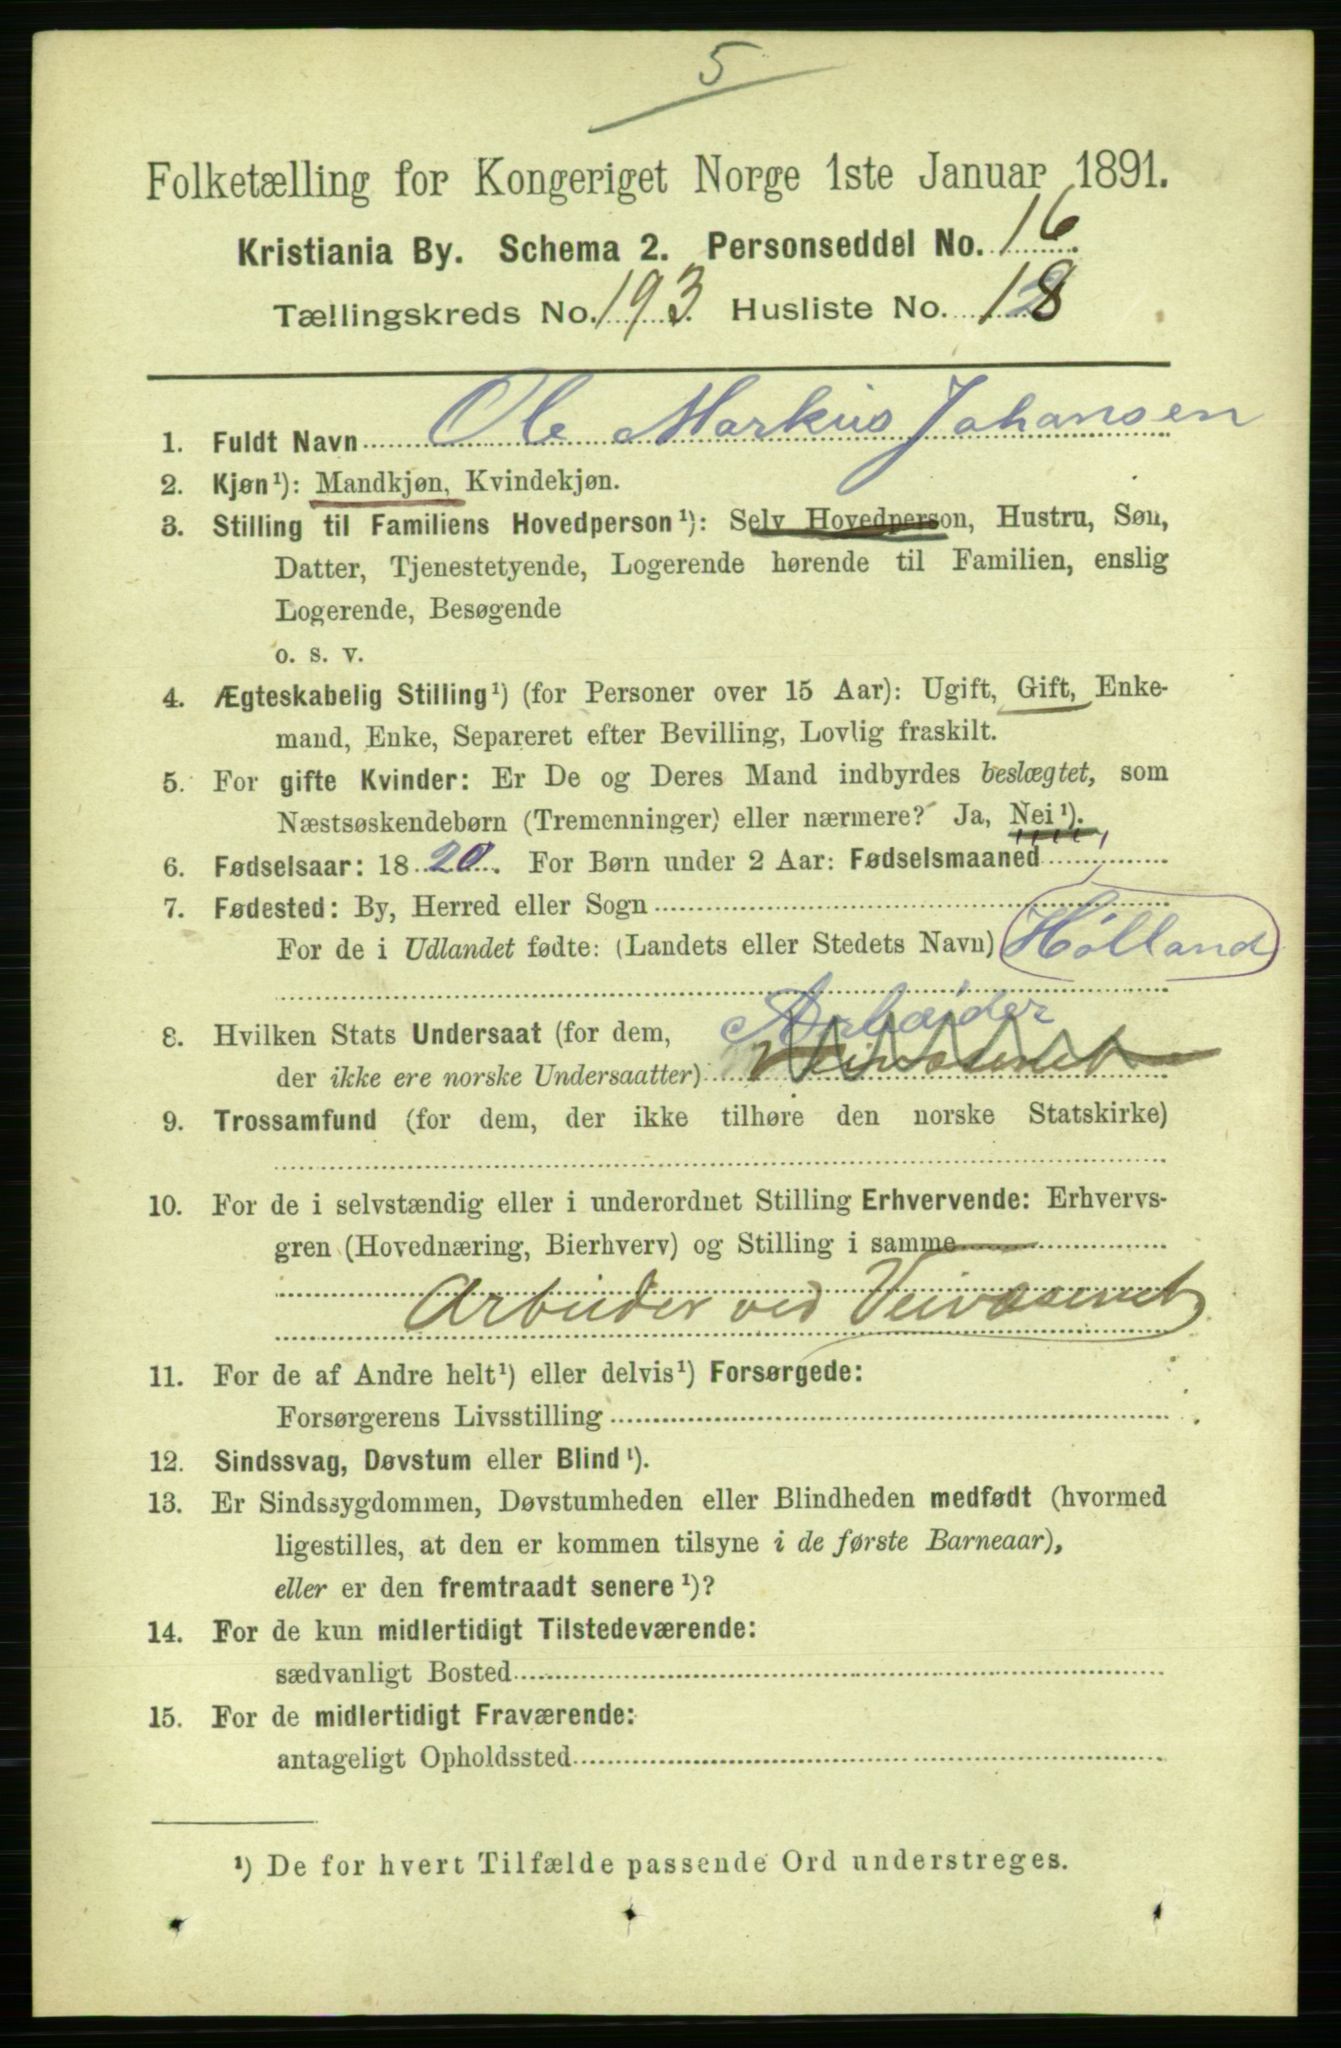 5
Folketælling for Kongeriget Norge 1ste Januar 1891.
Kristiania By. Schema 2. Personseddel No. 16.
Tællingskreds No. 193 Husliste No. 18
1. Fuldt Navn Ole Markus Johansen
2. Kjøn¹): Mandkjøn, Kvindekjøn.
3. Stilling til Familiens Hovedperson¹): Selv Hovedperson, Hustru, Søn,
Datter, Tjenestetyende, Logerende hørende til Familien, enslig
Logerende, Besøgende
o. s. v.
4. Ægteskabelig Stilling¹) (for Personer over 15 Aar): Ugift, Gift, Enke-
mand, Enke, Separeret efter Bevilling, Lovlig fraskilt.
5. For gifte Kvinder: Er De og Deres Mand indbyrdes beslægtet, som
Næstsøskendebørn (Tremenninger) eller nærmere? Ja, Nei¹).
6. Fødselsaar: 18 20. For Børn under 2 Aar: Fødselsmaaned
7. Fødested: By, Herred eller Sogn
For de i Udlandet fødte: (Landets eller Stedets Navn) Hølland
8. Hvilken Stats Undersaat (for dem, Arbeider
der ikke ere norske Undersaatter) Veivæsenet
9. Trossamfund (for dem, der ikke tilhøre den norske Statskirke)
10. For de i selvstændig eller i underordnet Stilling Erhvervende: Erhvervs-
gren (Hovednæring, Bierhverv) og Stilling i samme
Arbeider ved Veivæsenet
11. For de af Andre helt¹) eller delvis¹) Forsørgede:
Forsørgerens Livsstilling
12. Sindssvag, Døvstum eller Blind¹).
13. Er Sindssygdommen, Døvstumheden eller Blindheden medfødt (hvormed
ligestilles, at den er kommen tilsyne i de første Barneaar),
eller er den fremtraadt senere¹)?
14. For de kun midlertidigt Tilstedeværende:
sædvanligt Bosted
15. For de midlertidigt Fraværende:
antageligt Opholdssted
¹) De for hvert Tilfælde passende Ord understreges.